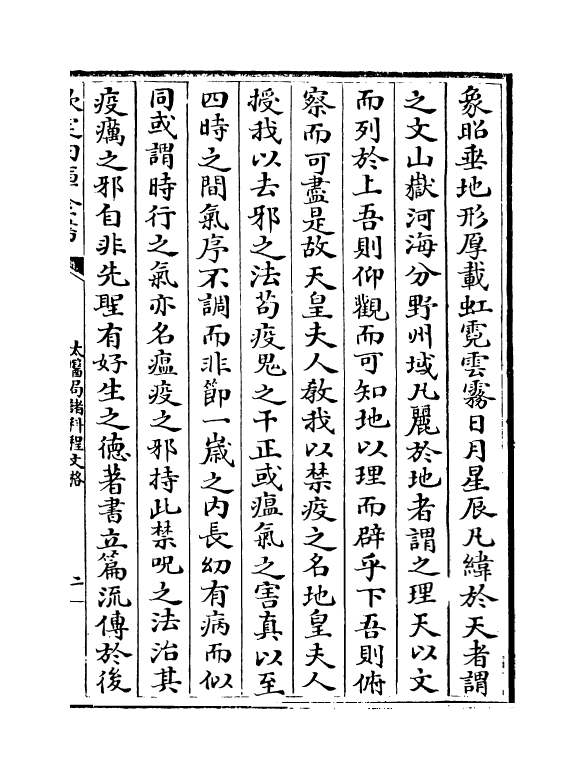 象昭垂地形厚載虹霓雲霧日月星辰凡緯於天者謂
之文山嶽河海分野州域凡麗於地者謂之理天以文
而列於上吾則仰觀而可知地以理而辟乎下吾則俯
察而可盡是故天皇夫人教我以禁疫之名地皇夫人
授我以去邪之法苟疫鬼之干正或瘟氣之害真以至
四時之間氣序不調而非節一嵗之内長幼有病而似
同或謂時行之氣亦名瘟疫之邪持此禁呪之法治其
疫癘之邪自非先聖有好生之徳著書立篇流傳於後
欽定四庫全書
太醫局諸科程文格
二